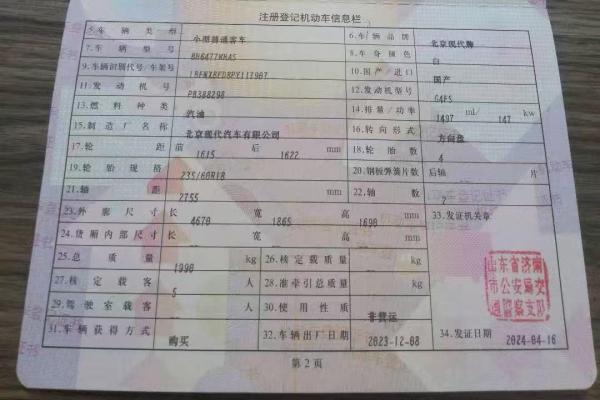 注册登记机动车信息栏
5.车辆类型 小型普通客车 6.车辆品牌 北京现代牌
7.车辆型号 BH6477NHAS 8.车身颜色 白
9.车辆识别代号/车架号 10.国产/进口 国产
11.发动机号 PB388298 12.发动机型号 G4FS
13.燃料种类 汽油 14.排量/功率 1497 ml/ 147 kw
15.制造厂名称 北京现代汽车有限公司 16.转向形式 方向盘
17.轮距 前 1615 后 1622 mm 18.轮胎数 4
19.轮胎规格 235/60R18 20.钢板弹簧片数 后轴 片
21.轴距 2755 mm 22.轴数 2
23.外廓尺寸 长 4670 宽 1865 高 1690 mm 33.发证机关章
24.货厢内部尺寸 长 宽 高 mm
25.总质量 1990 kg 26.核定载质量 kg
27.核定载客 5 人 28.准牵引总质量 kg
29.驾驶室载客 人 30.使用性质 非营运
31.车辆获得方式 购买 32.车辆出厂日期 2023-12-08 34.发证日期 2024-04-16
山东省济南
市公安局交
通警察支队
第2页